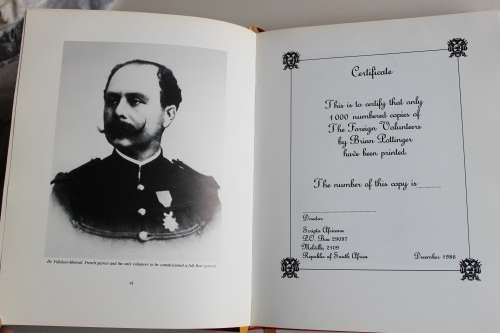 De Villebois-Mareuil, French patriot and the only volunteer to be commissioned a full Boer general.
Certificate
This is to certify that only
1 000 numbered copies of
The Foreign Volunteers
by Brian Pottinger
have been printed
The number of this copy is
Director
Scripta Africana
P.O. Box 29097
Melville, 2109
Republic of South Africa
December 1986